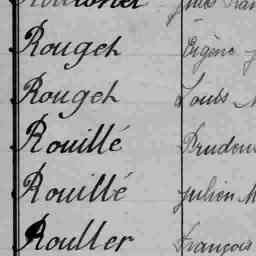 Rouget Eugène
Rouget Louis
Rouillé
Rouillé Julien M
Rouller François